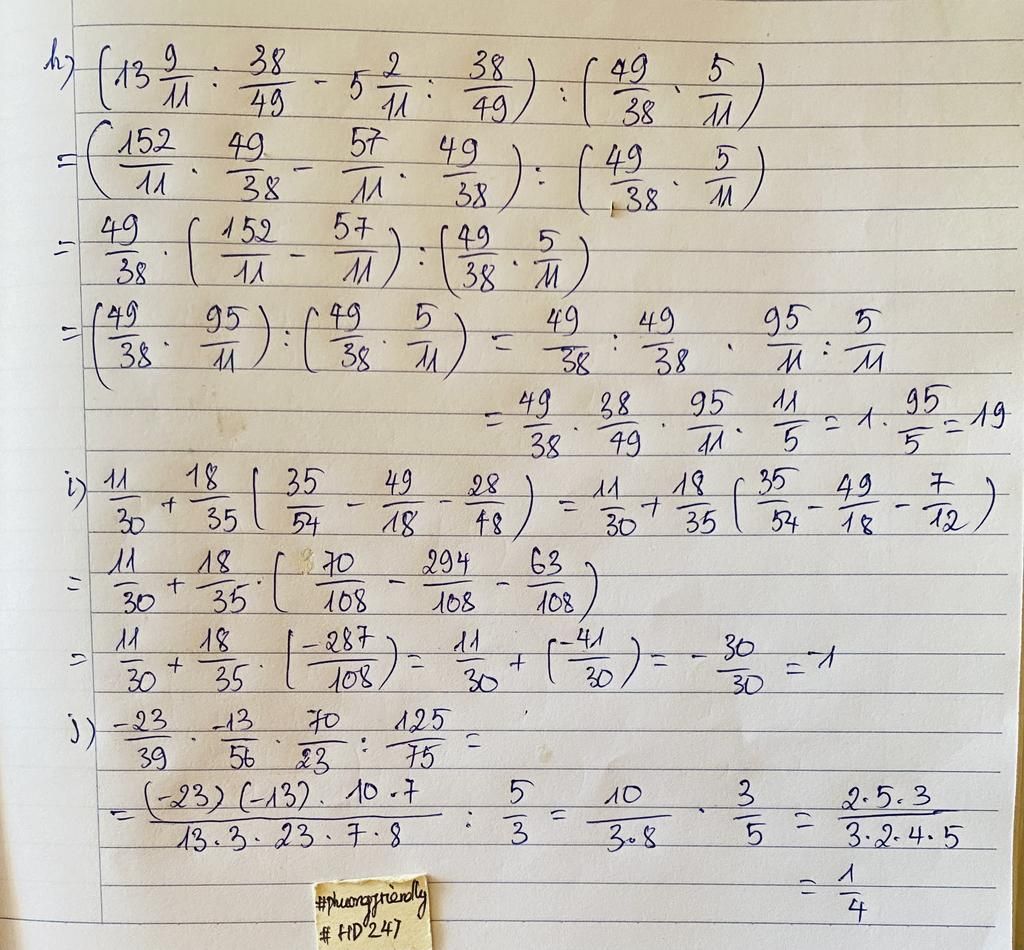 h) (13 9/11 : 38/49 - 5 2/11 : 38/49) : (49/38 . 5/11)
= (152/11 . 49/38 - 57/11 . 49/38) : (49/38 . 5/11)
= 49/38 . (152/11 - 57/11) : (49/38 . 5/11)
= (49/38 . 95/11) : (49/38 . 5/11) = 49/38 : 49/38 . 95/11 : 5/11
= 49/38 . 38/49 . 95/11 . 11/5 = 1 . 95/5 = 19
i) 11/30 + 18/35 (35/54 - 49/18 - 28/48) = 11/30 + 18/35 (35/54 - 49/18 - 7/12)
= 11/30 + 18/35 . (70/108 - 294/108 - 63/108)
= 11/30 + 18/35 . (-287/108) = 11/30 + (-41/30) = - 30/30 = -1
j) -23/39 . -13/56 . 70/23 : 125/75 =
= (-23) (-13) . 10 . 7 / 13 . 3 . 23 . 7 . 8 : 5/3 = 10 / 3 . 8 . 3/5 = 2 . 5 . 3 / 3 . 2 . 4 . 5
= 1/4
#phuongfriendly
# HD 247